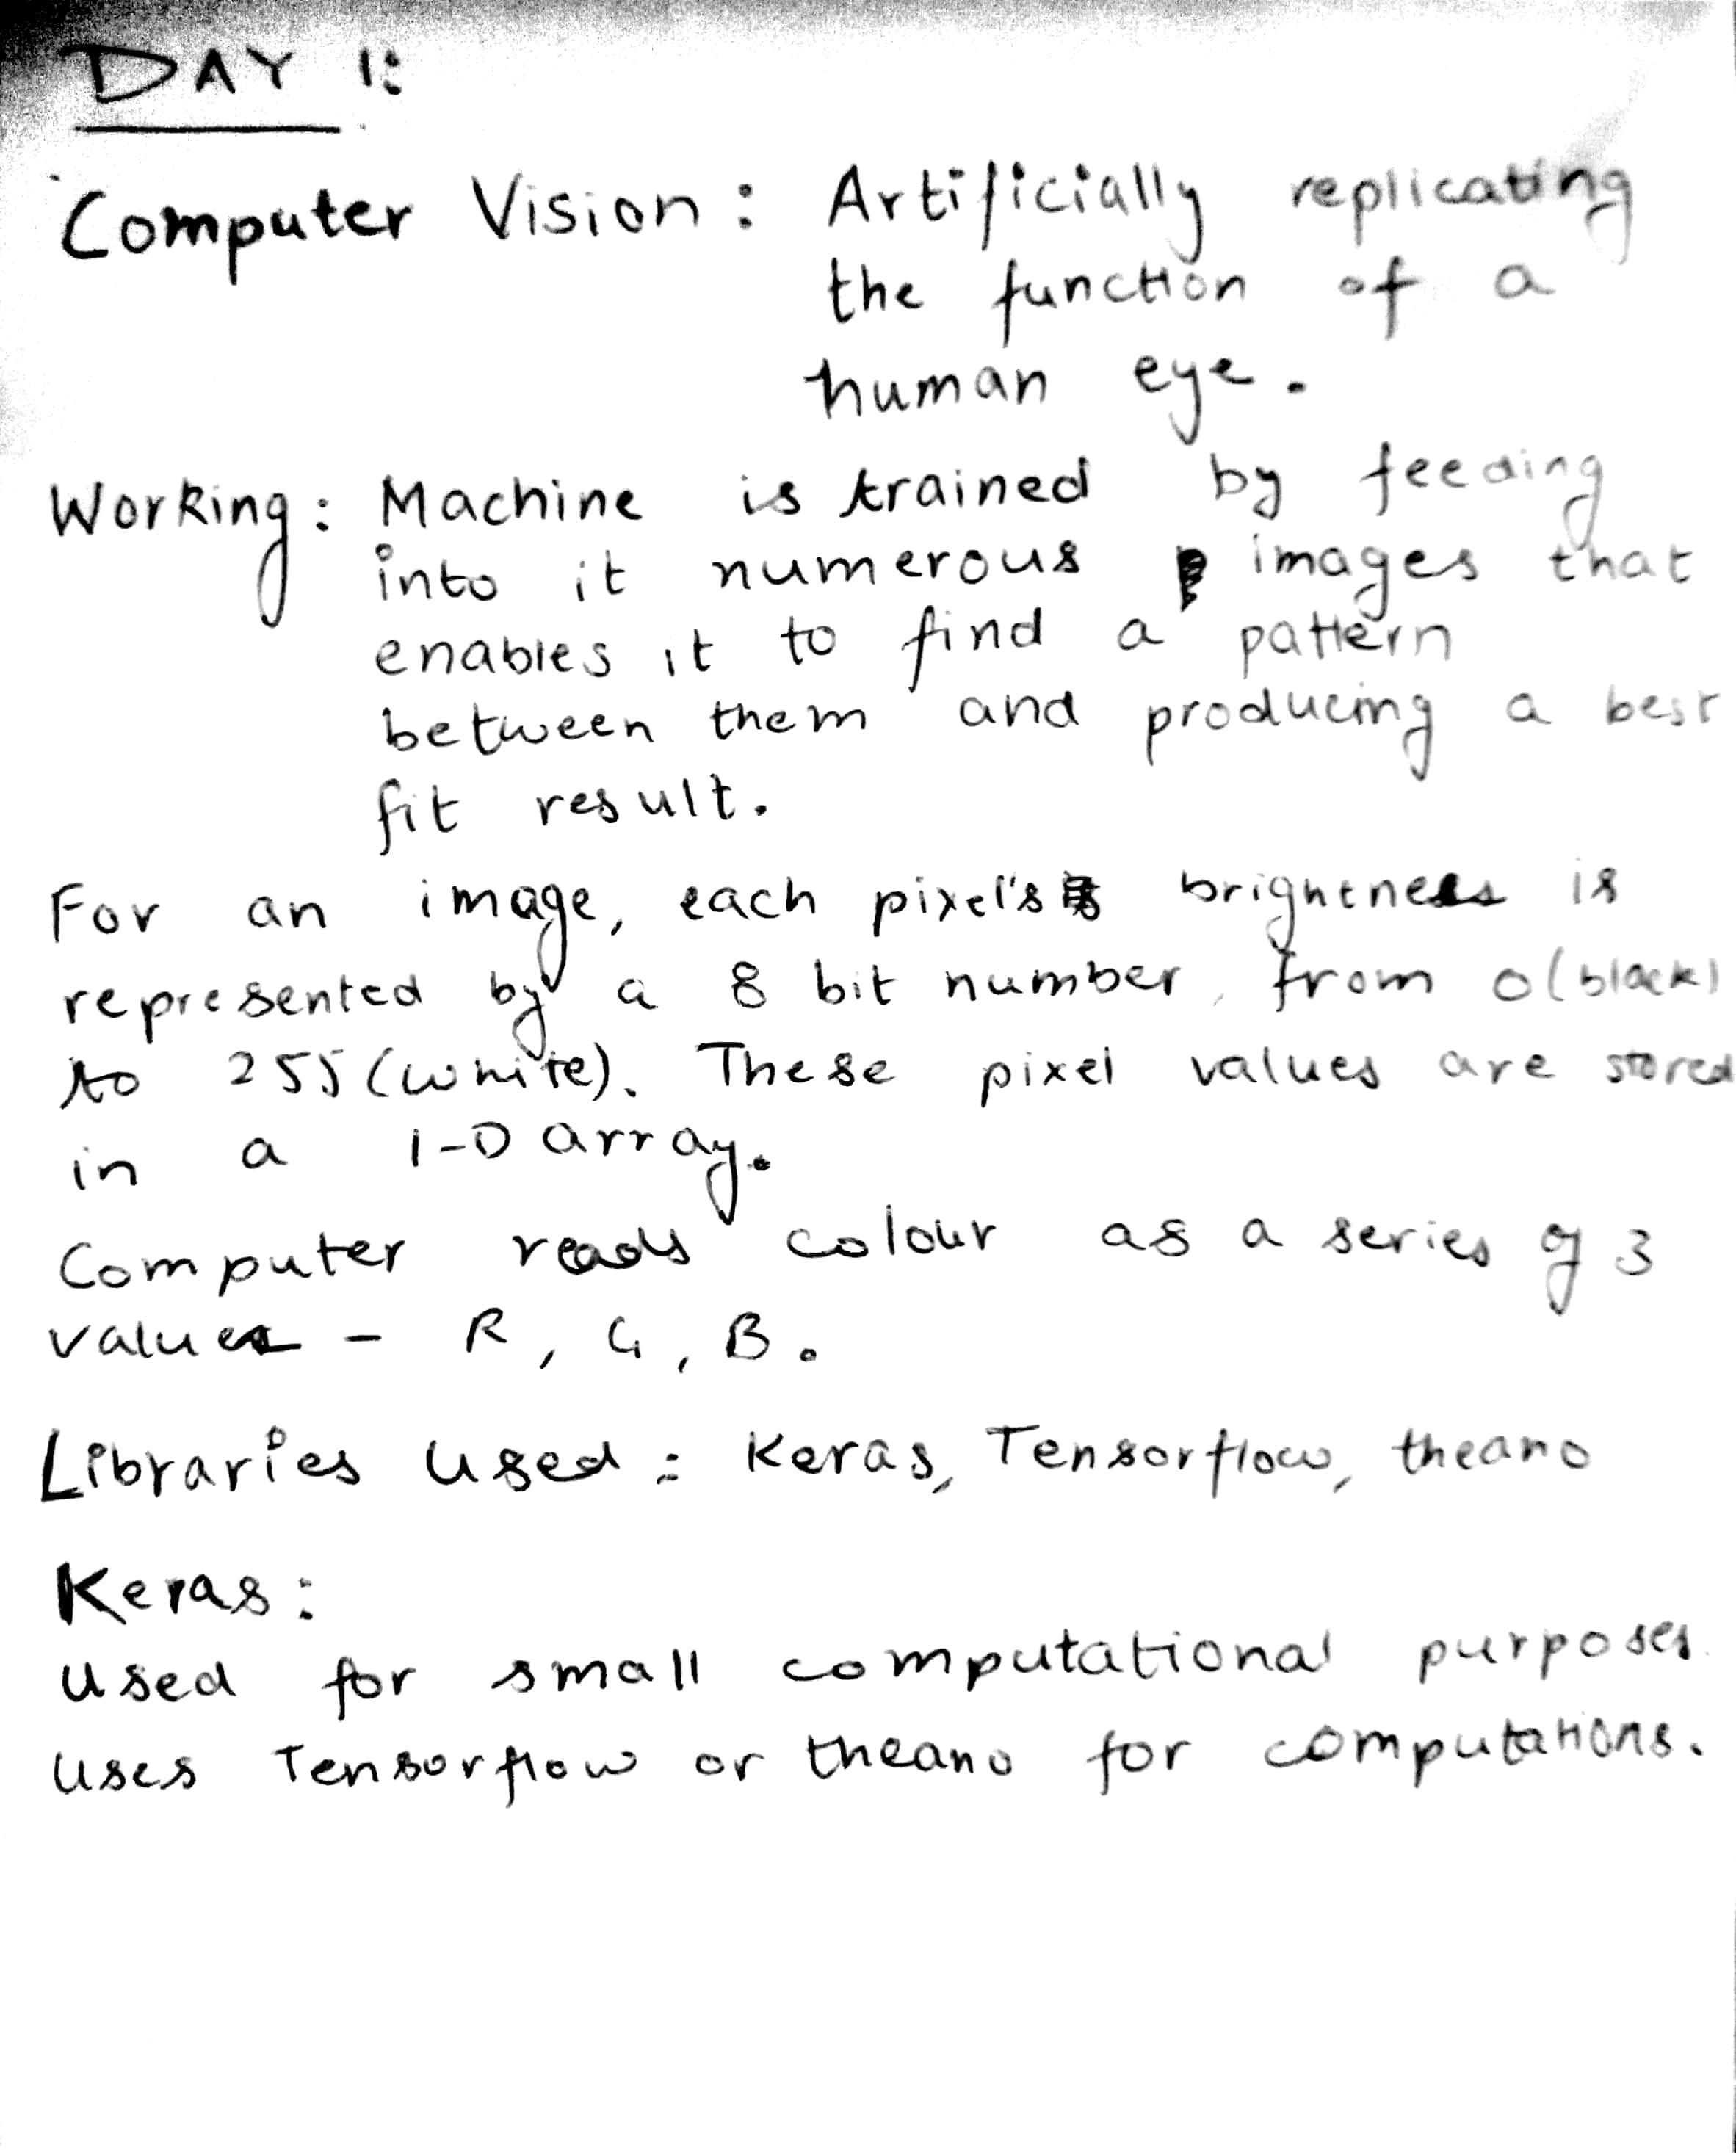 DAY 1:
Computer Vision: Artificially replicating
the function of a
human eye.
Working: Machine is trained by feeding
into it numerous images that
enables it to find a pattern
between them and producing a best
fit result.
For an image, each pixel's brightness is
represented by a 8 bit number, from 0(black)
to 255(white). These pixel values are stored
in a 1-D array.
Computer reads colour as a series of 3
values - R, G, B.
Libraries used: Keras, Tensorflow, theano
Keras:
used for small computational purposes.
uses Tensorflow or theano for computations.